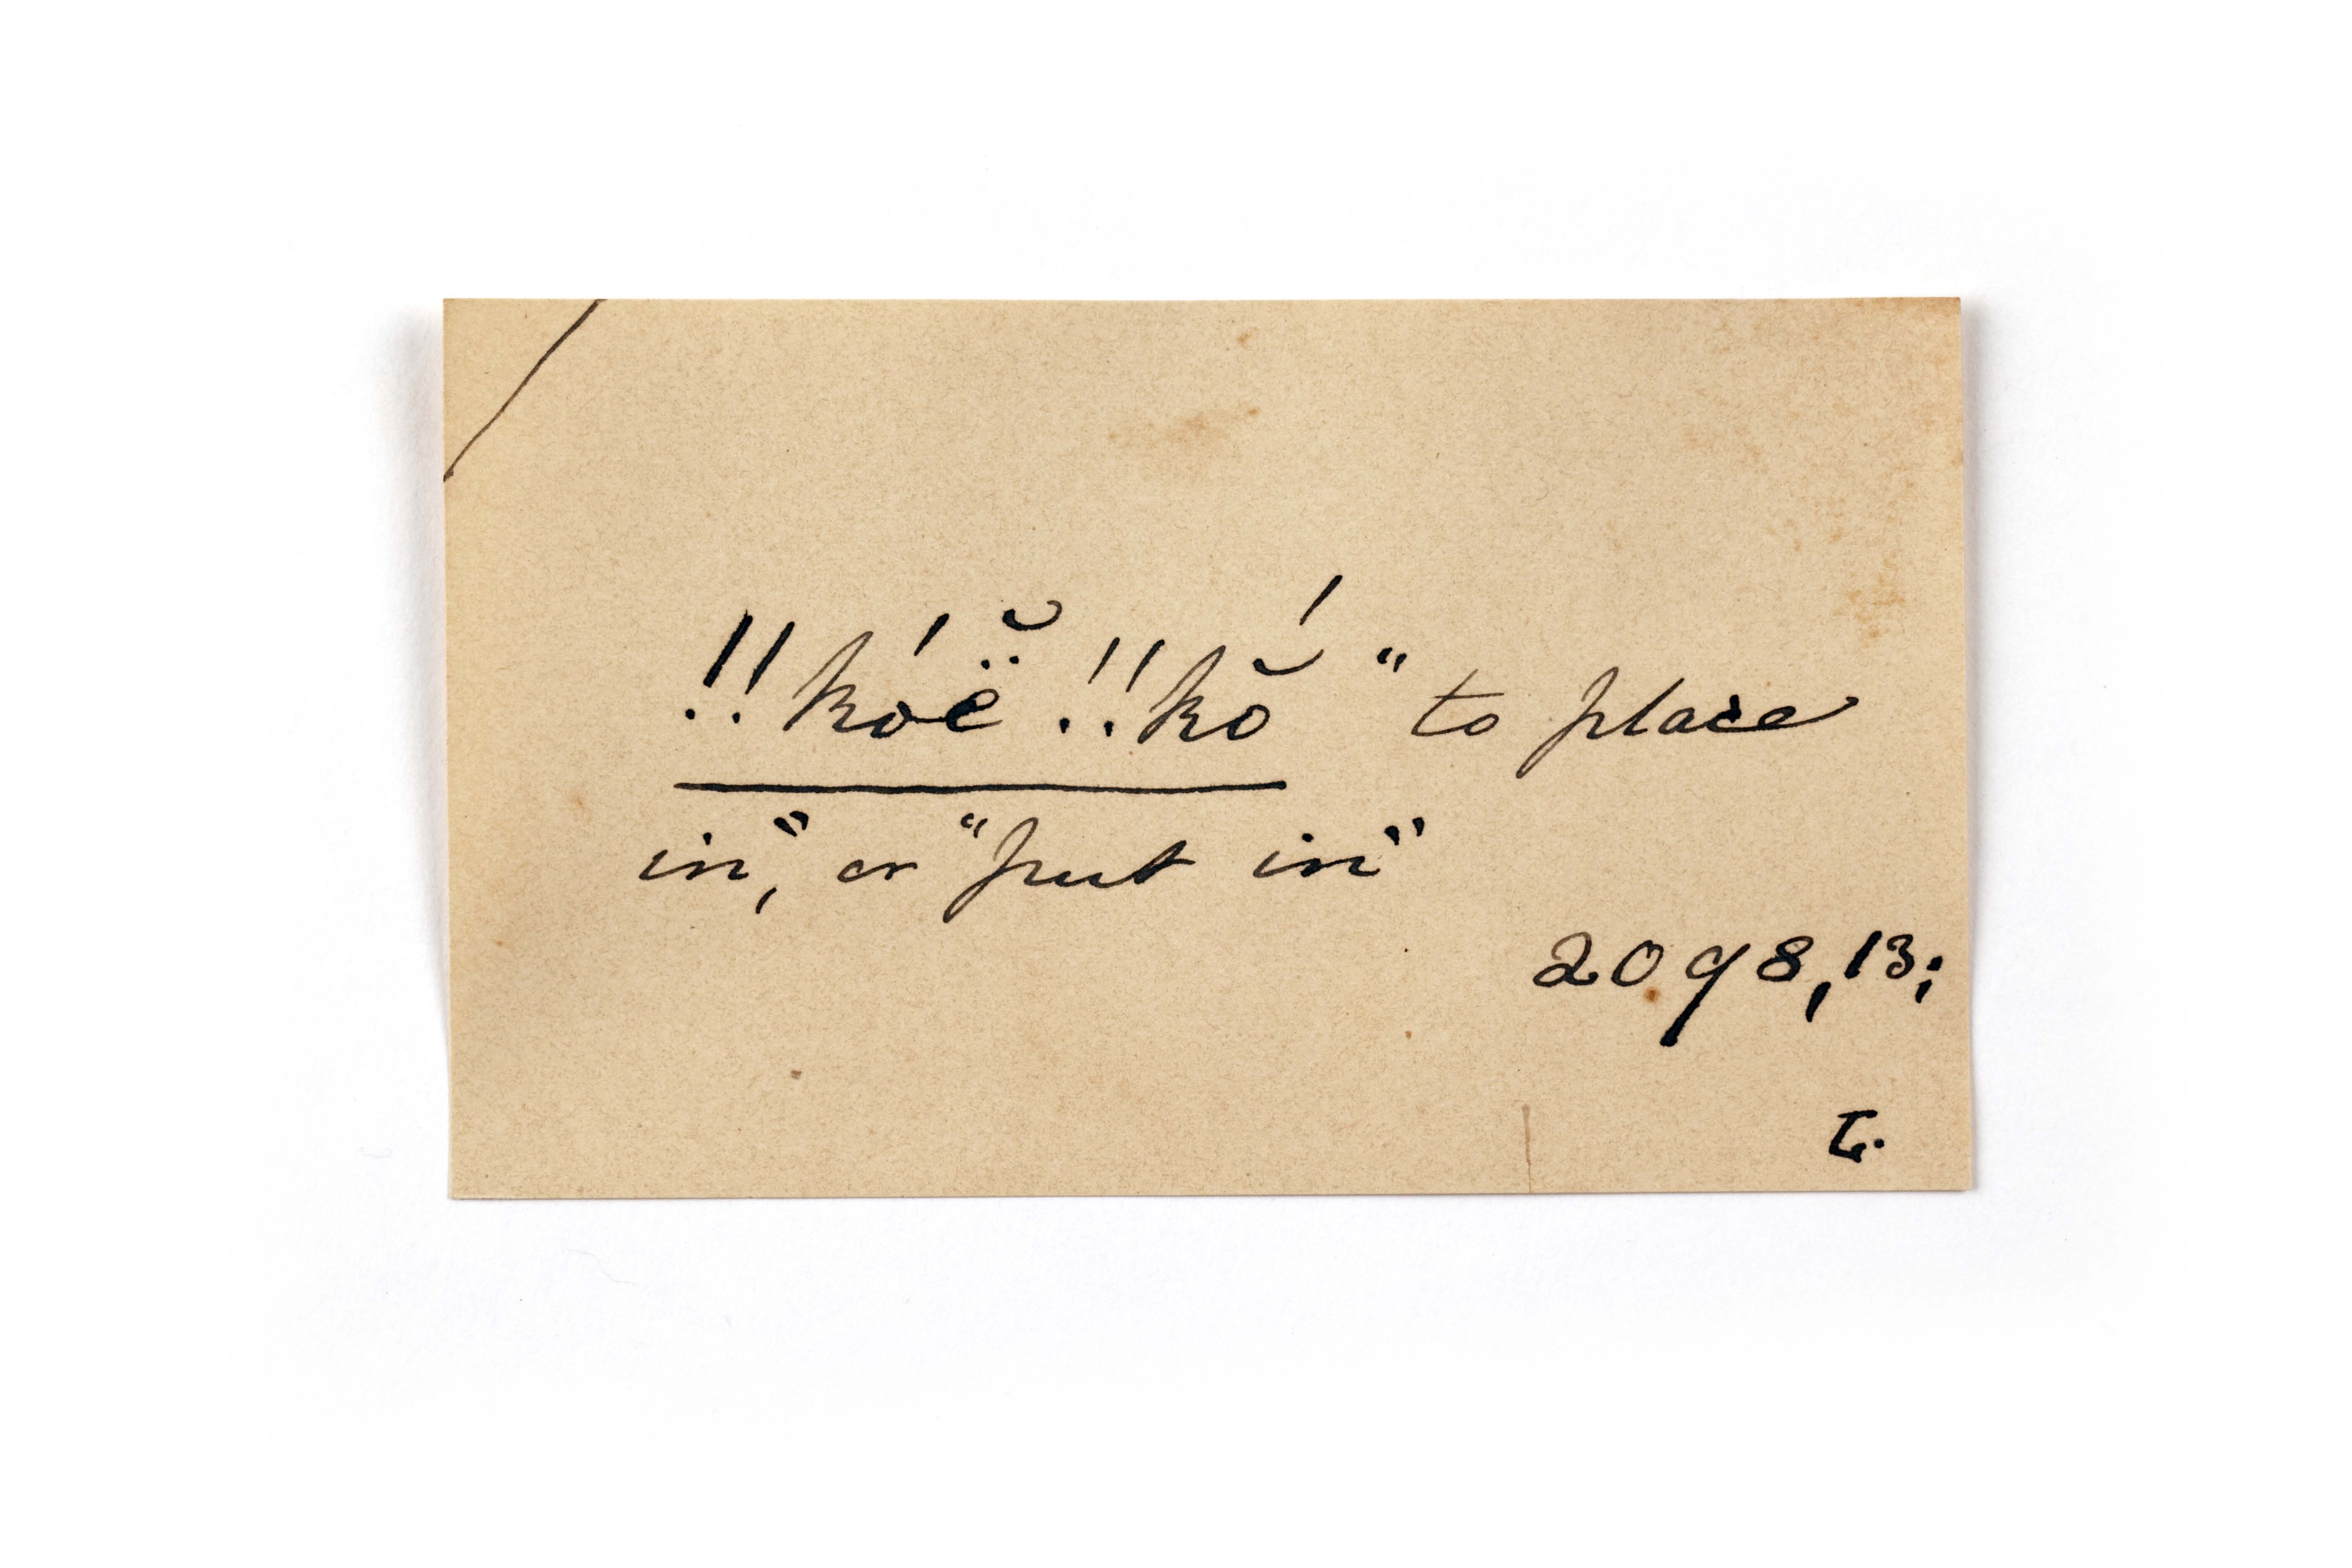 !!kóë̆ !!kŏ́ "to place
in", or "put in"
2098,13;
L.